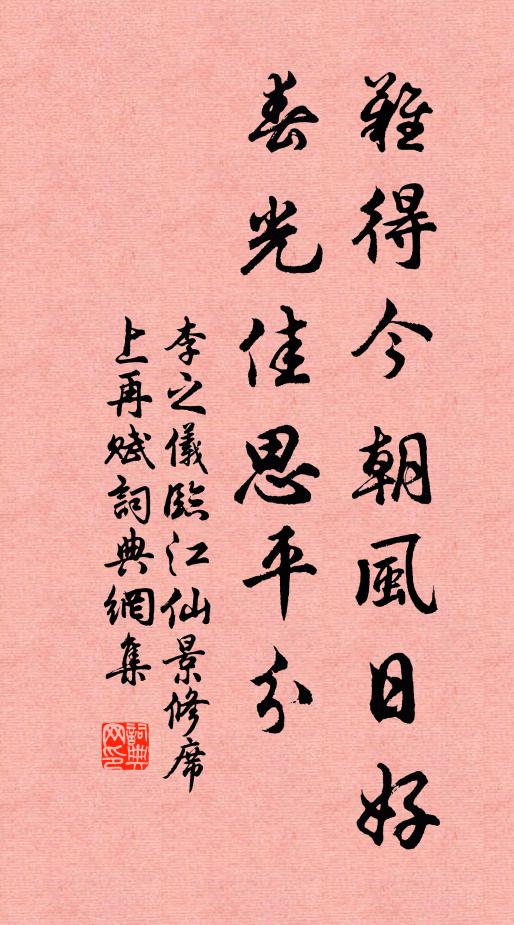 難得今朝風日好
春光佳思平分
李之儀臨江仙景修席
上再賦詞典網集
詞典
网印